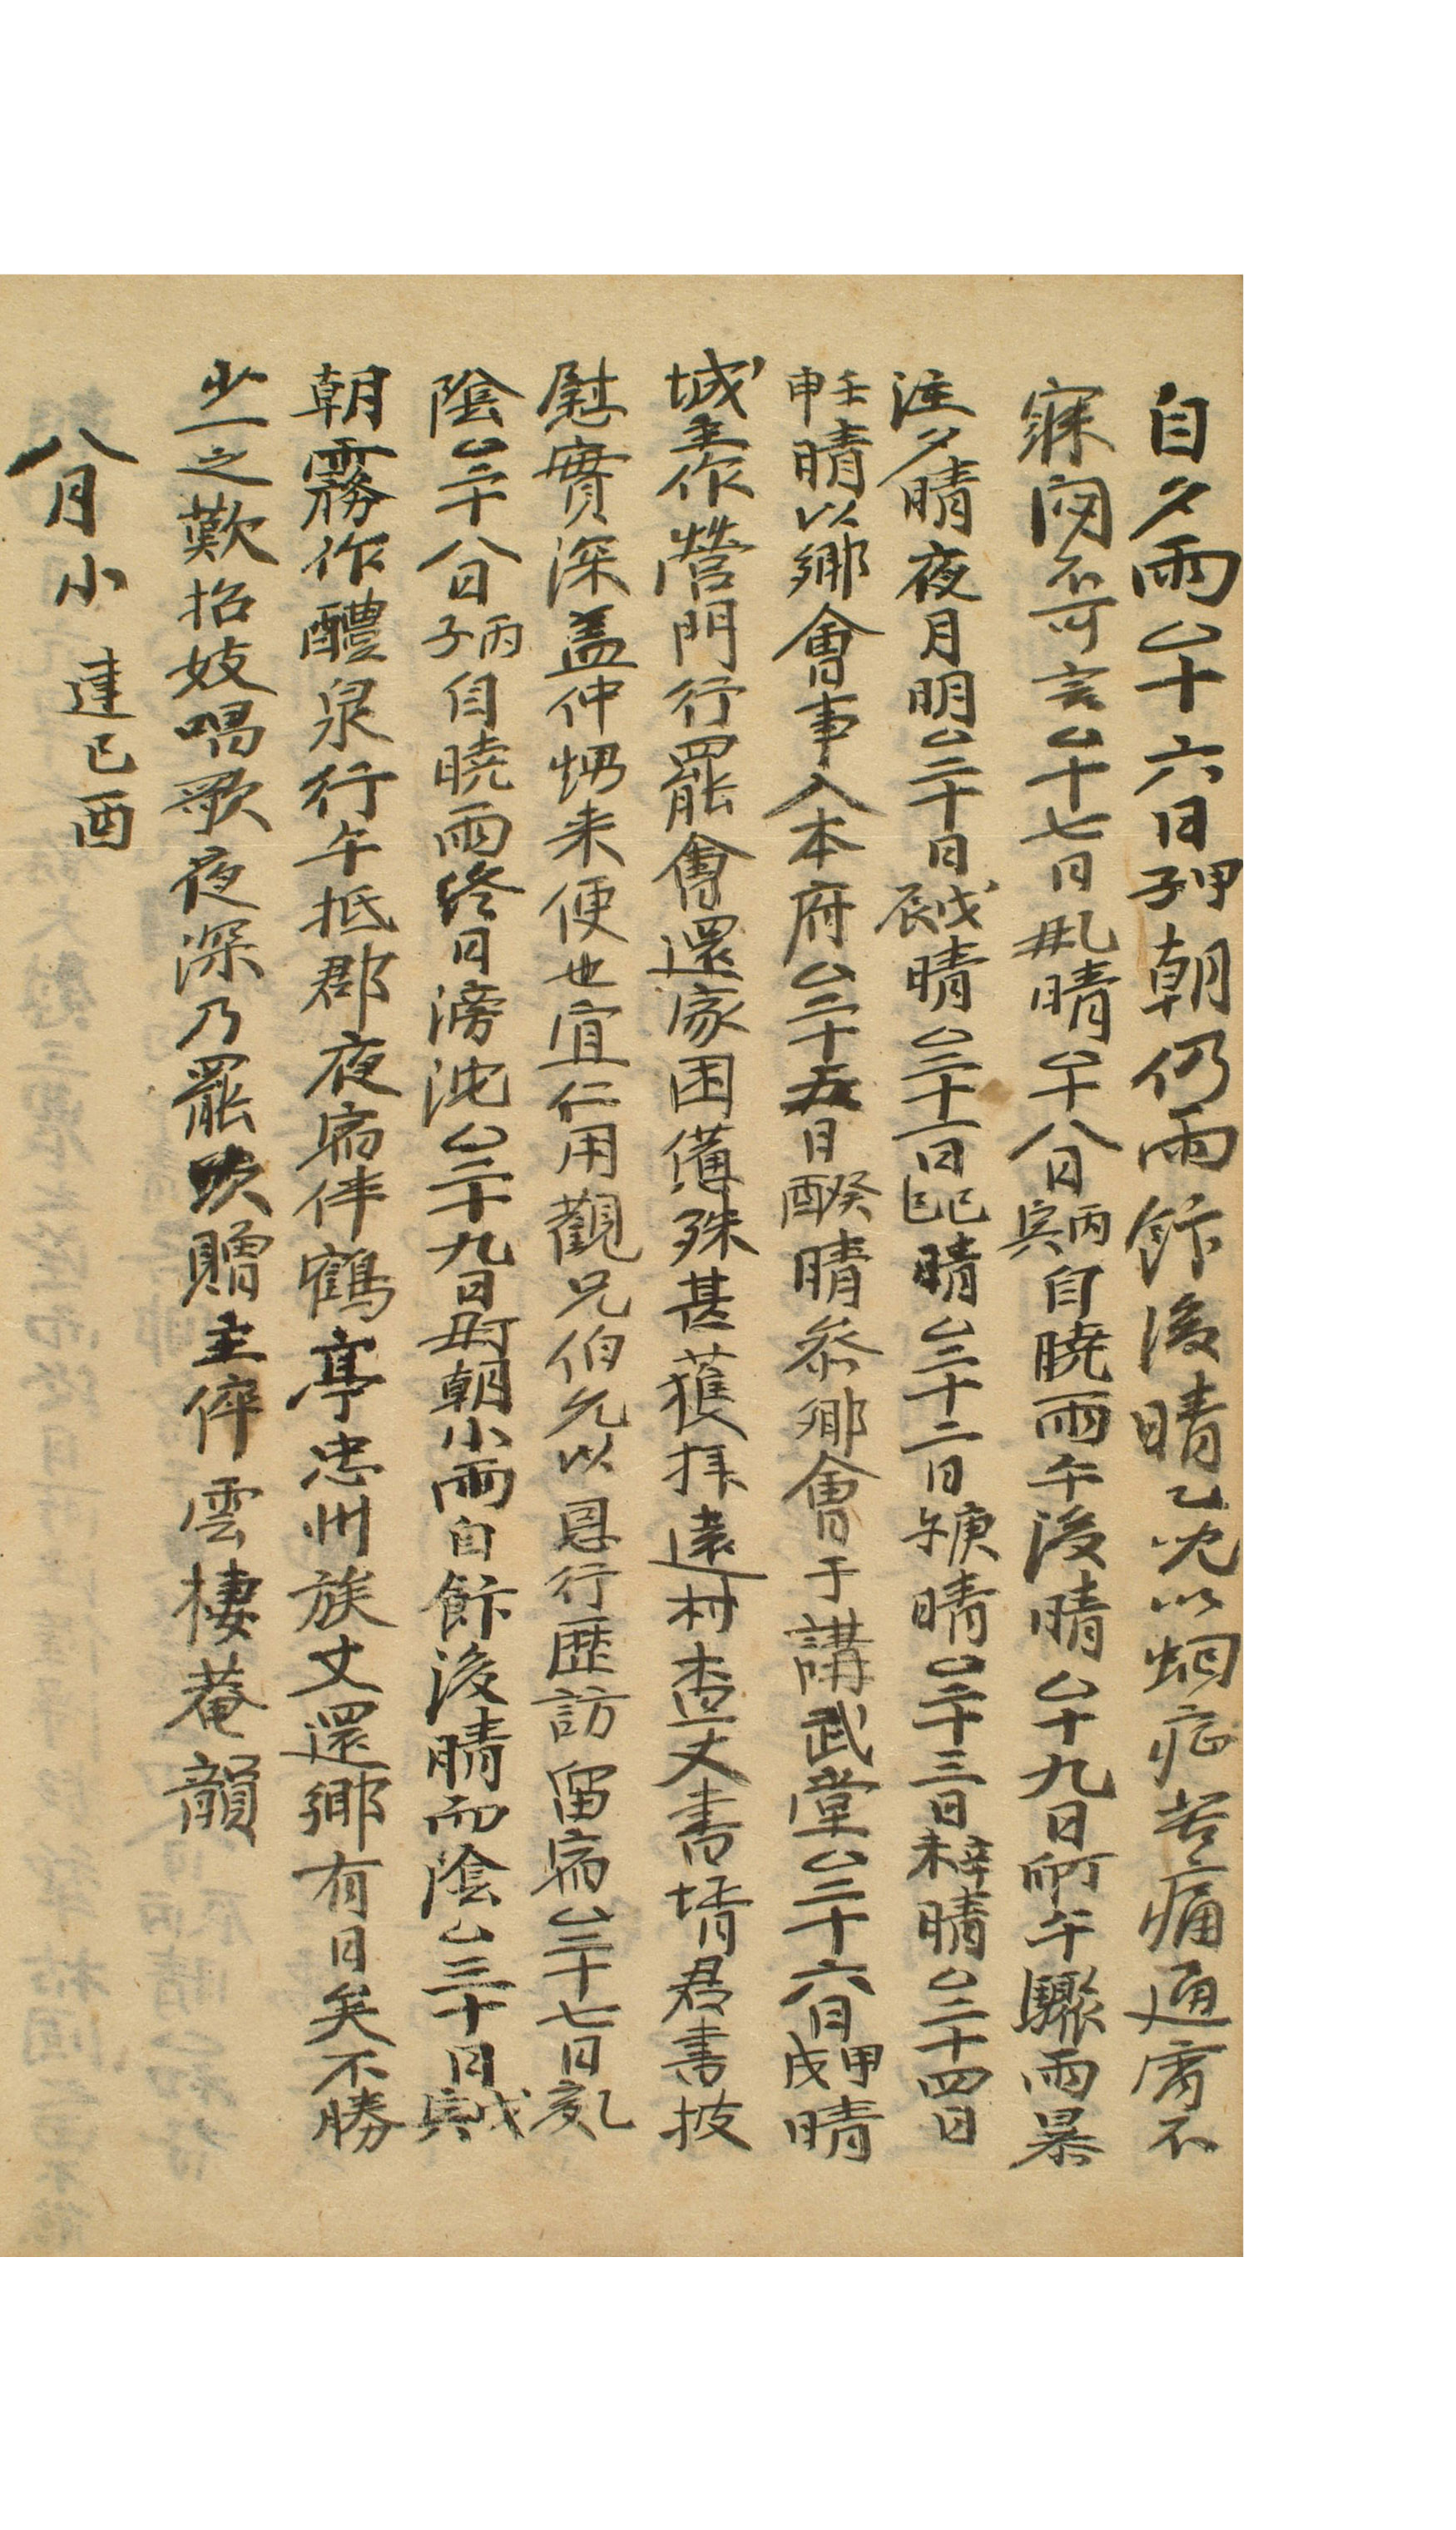 自夕雨△十六日甲子朝仍雨飭後晴乙兄以蛔症苦痛通宵不
寐悶不可言△十七日乙丑晴△十八日丙寅自曉雨午後晴△十九日丁卯午驟雨暴
注夕晴夜月明△二十日戊辰晴△二十一日己巳晴△二十二日庚午晴△二十三日辛未晴△二十四日
壬申晴以鄉會事入本府△二十五日癸酉晴參鄉會于講武堂△二十六日甲戌晴
城主作營門行罷會還家困憊殊甚獲拜遠村査丈書壻君書披
慰實深盖仲甥来便也宜仁用觀兄伯允以恩行歷訪留宿△二十七日乙亥
陰△二十八日丙子自曉雨終日滂沱△二十九日丁丑朝小雨自飭後晴而陰△三十日戊寅
朝霧作醴泉行午抵郡夜宿伴鶴亭忠州族丈還鄉有日矣不勝
少一之歎招妓唱歌夜深乃罷吹贈主倅雲棲菴韻
八月小 建己酉